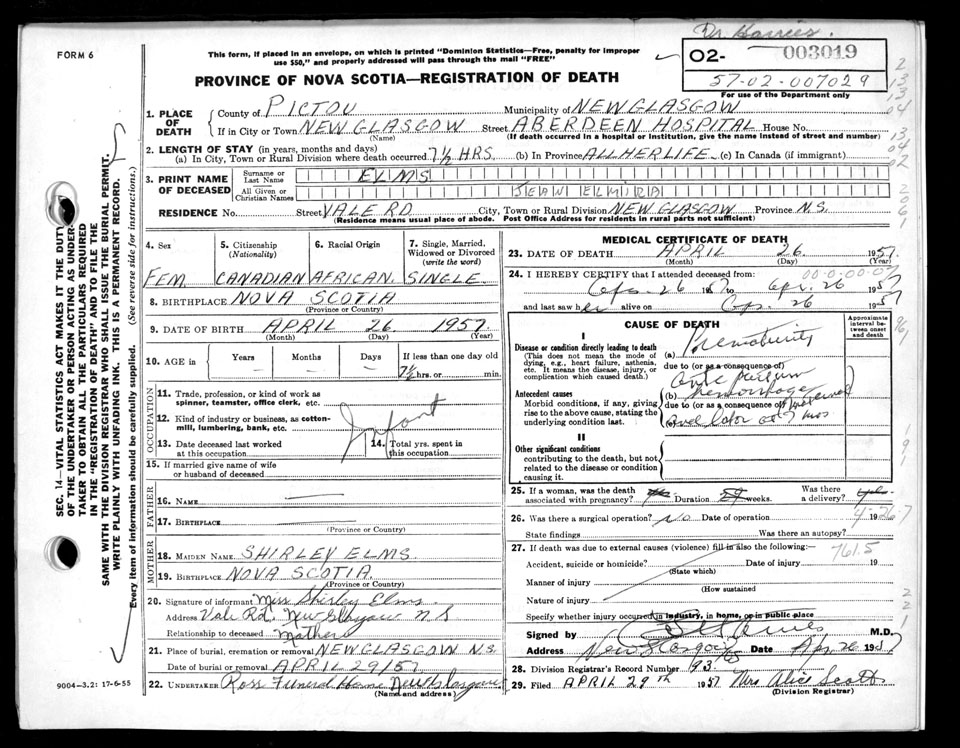 Dr Harries.
FORM 6
This form, if placed in an envelope, on which is printed "Dominion Statistics—Free, penalty for improper
use $50," and properly addressed will pass through the mail "FREE"
PROVINCE OF NOVA SCOTIA—REGISTRATION OF DEATH
02- 003019
57-02-007029
For use of the Department only
1. PLACE OF DEATH
County of PICTOU Municipality of NEW GLASGOW
If in City or Town NEW GLASGOW Street ABERDEEN HOSPITAL House No.
(Name) (If death occurred in a hospital or institution, give the name instead of street and number)
2. LENGTH OF STAY (in years, months and days)
(a) In City, Town or Rural Division where death occurred 7½ HRS. (b) In Province ALL HER LIFE. (c) In Canada (if immigrant)
3. PRINT NAME OF DECEASED
Surname or Last Name ELMS
All Given or Christian Names JEAN ELMIRA
RESIDENCE No. Street VALE RD City, Town or Rural Division NEW GLASGOW Province N.S.
(Residence means usual place of abode. Post Office Address for residents in rural parts not sufficient)
4. Sex 5. Citizenship (Nationality) 6. Racial Origin 7. Single, Married, Widowed or Divorced (write the word)
FEM. CANADIAN AFRICAN. SINGLE
8. BIRTHPLACE NOVA SCOTIA
(Province or Country)
9. DATE OF BIRTH APRIL 26. 1957.
(Month) (Day) (Year)
10. AGE in Years Months Days If less than one day old
7½ hrs. or min.
OCCUPATION
11. Trade, profession, or kind of work as
spinner, teamster, office clerk. etc.
12. Kind of industry or business, as cotton-
mill, lumbering, bank, etc.
Infant
13. Date deceased last worked
at this occupation
14. Total yrs. spent in
this occupation
15. If married give name of wife
or husband of deceased
FATHER
16. NAME
17. BIRTHPLACE
(Province or Country)
MOTHER
18. MAIDEN NAME SHIRLEY ELMS
19. BIRTHPLACE NOVA SCOTIA.
(Province or Country)
20. Signature of informant Miss Shirley Elms
Address Vale Rd. New Glasgow N.S
Relationship to deceased Mother
21. Place of burial, cremation or removal NEW GLASGOW N.S.
Date of burial or removal APRIL 29/57
22. UNDERTAKER Ross Funeral Home New Glasgow
(Name and address)
MEDICAL CERTIFICATE OF DEATH
23. DATE OF DEATH APRIL 26. 1957
(Month) (Day) (Year)
24. I HEREBY CERTIFY that I attended deceased from:
00-0:00-07
Apr. 26 1957 to Apr. 26 1957
and last saw her alive on Apr. 26 1957
CAUSE OF DEATH
Approximate interval between onset and death
I
Disease or condition directly leading to death
(This does not mean the mode of
dying, e.g., heart failure, asthenia,
etc. It means the disease, injury, or
complication which caused death.)
(a) Prematurity
due to (or as a consequence of)
Antecedent causes
Morbid conditions, if any, giving
rise to the above cause, stating the
underlying condition last.
Ante partum
(b) hemorrhage
due to (or as a consequence of) maternal
II
Other significant conditions
contributing to the death, but not
related to the disease or condition
causing it.
25. If a woman, was the death
associated with pregnancy? Duration weeks. Was there
a delivery?
26. Was there a surgical operation? No Date of operation 19
4-26-7
State findings Was there an autopsy?
27. If death was due to external causes (violence) fill in also the following:—
761.5
Accident, suicide or homicide? Date of injury 19
(State which)
Manner of injury
(How sustained
Nature of injury
Specify whether injury occurred in industry, in home, or in public place
Signed by M.D.
Address New Glasgow Date Apr 26 1957
28. Division Registrar's Record Number 93.
29. Filed APRIL 29th 1957 Mrs Alice Scott
(Division Registrar)
SEC. 14—VITAL STATISTICS ACT MAKES IT THE DUTY
OF THE UNDERTAKER OR PERSON ACTING AS UNDER-
TAKER TO OBTAIN ALL THE PARTICULARS REQUIRED
IN THE "REGISTRATION OF DEATH" AND TO FILE THE
SAME WITH THE DIVISION REGISTRAR WHO SHALL ISSUE THE BURIAL PERMIT.
WRITE PLAINLY WITH UNFADING INK. THIS IS A PERMANENT RECORD.
Every item of information should be carefully supplied. (See reverse side for instructions.)
9004—3.2: 17-6-55